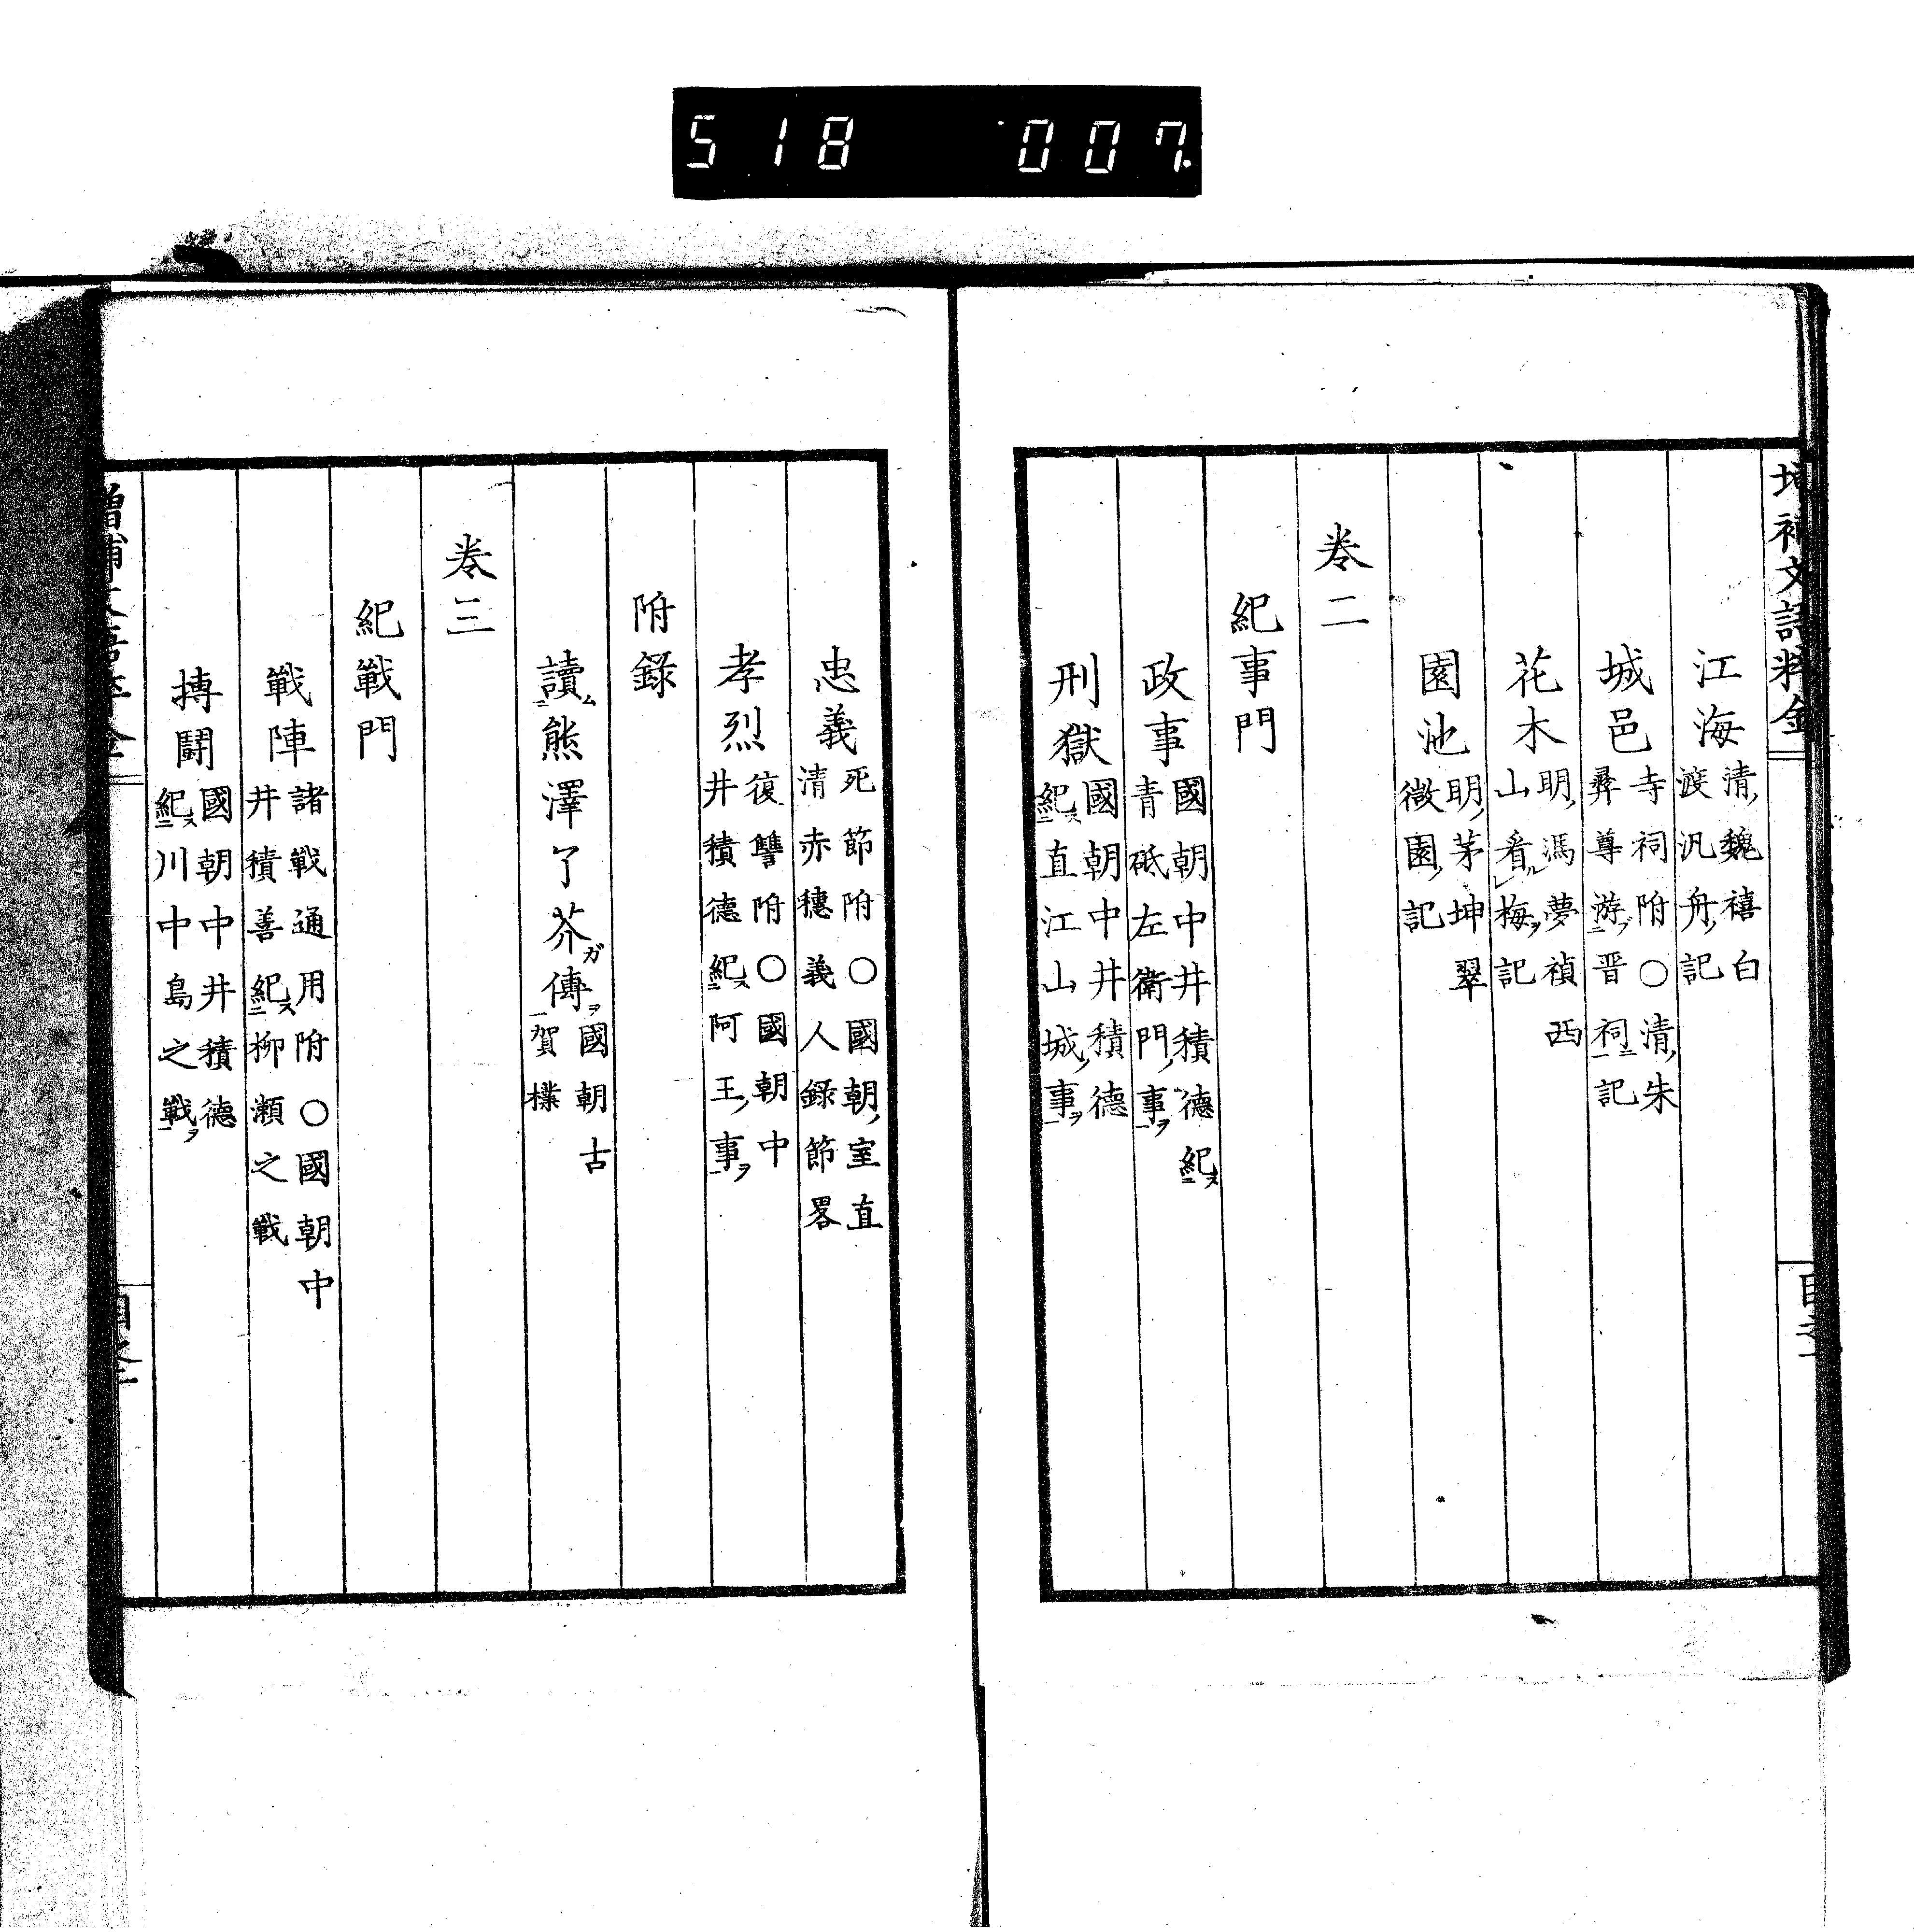 518 007
江海 清魏禧白
渡汎舟記
城邑 寺祠附○清朱
彝尊游晋祠記
花木 明馮夢禎西
山看梅記
園池 明茅坤翠
微園記
卷二
紀事門
政事 國朝中井積德紀
青砥左衛門事
刑獄 國朝中井積德
紀直江山城事
忠義 死節附○國朝室直
清赤穗義人錄節畧
孝烈 復讐附○國朝中
井積德紀阿王事
附錄
讀熊澤了芥傳 國朝古
賀樸
卷三
紀戰門
戰陣 諸戰通用附○國朝中
井積善紀柳瀬之戰
搏鬪 國朝中井積德
紀川中島之戰